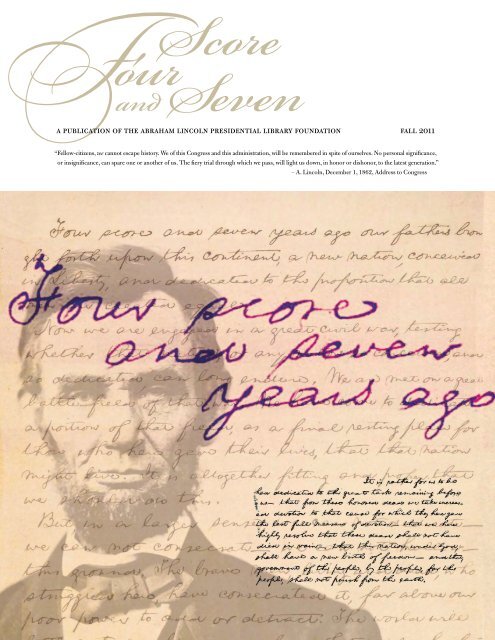 Four Score
and Seven
A PUBLICATION OF THE ABRAHAM LINCOLN PRESIDENTIAL LIBRARY FOUNDATION FALL 2011
“Fellow-citizens, we cannot escape history. We of this Congress and this administration, will be remembered in spite of ourselves. No personal significance,
or insignificance, can spare one or another of us. The fiery trial through which we pass, will light us down, in honor or dishonor, to the latest generation.”
– A. Lincoln, December 1, 1862, Address to Congress
Four score and seven years ago our fathers brou
ght forth upon this continent, a new nation, conceived
in Liberty, and dedicated to the proposition that all
Four score
and seven
years ago
Now we are engaged in a great civil war, testing
whether
so dedicated, can long endure. We are met on a great
battle field of that
a portion of that field, as a final resting place for
those who here gave their lives, that that nation
might live. It is altogether fitting and proper that
we should do this.
But in a larger sense
we can not consecrate
this ground. The brave
struggled here have consecrated it, far above our
poor power to add or detract. The world will
It is rather for us to be
here dedicated to the great task remaining before
us— that from these honored dead we take increas-
ed devotion to that cause for which they here gave
the last full measure of devotion— that we here
highly resolve that these dead shall not have
died in vain, that this nation, under God,
shall have a new birth of freedom— and that
government of the people, by the people, for the
people, shall not perish from the earth.